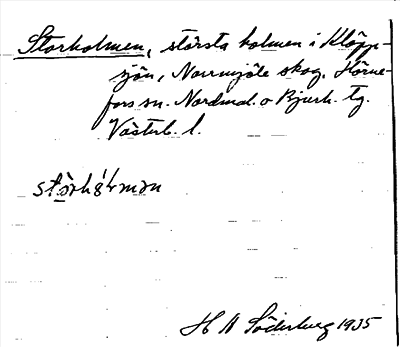 Storholmen, största holmen i Klöpp-
sjön, Norrmjöle skog, Hörne-
fors sn. Nordmal. o Bjurh. tg.
Västerb. l.
H A Söderberg 1935